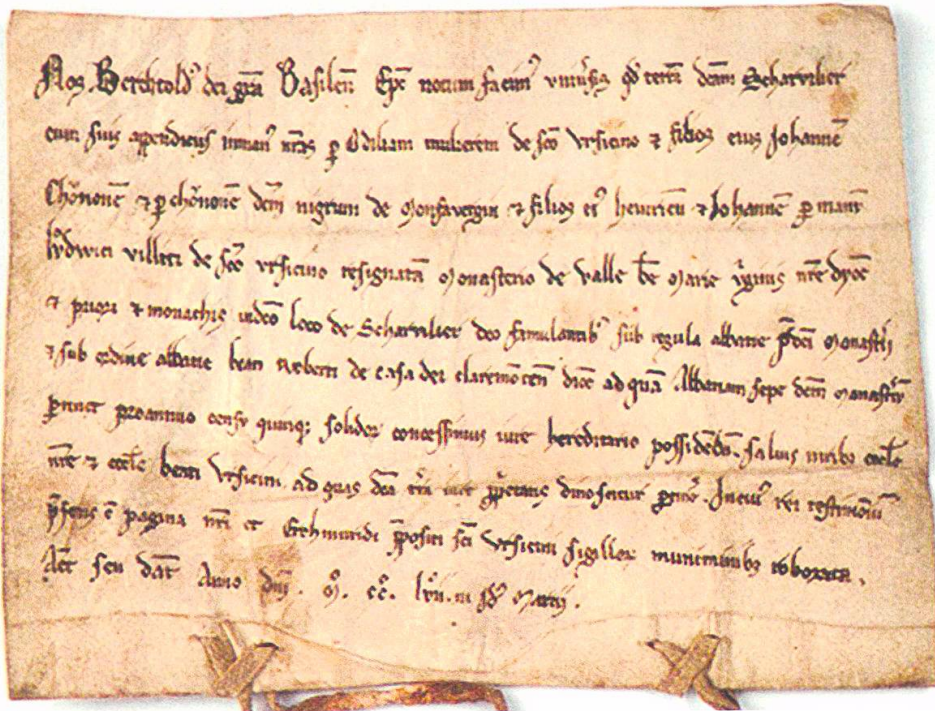 Nos Berchtold' dei gr̄a Basileñ Ep̄c notum facim' vniu'sis qd' terrā dc̄am Scharvilier
cum suis appendiciis in man' nr̄as p Odiliam mulierem de sc̄o Vrsicino et filios eius Johannē
et p dc̄m nigrum de Monfavergier et filios ei' henricū et Johannē p manū
villici de sc̄o Vrsicino resignatā Monasterio de valle bē Marie v'ginis nr̄e dyoc̄
et priori et monachis in dc̄o loco de Scharvilier deo famulantib' sub regula abbatie p̄dc̄i Monast'ii
et sub ordine abbatie beati Roberti de Casa dei claremōteñ dioc̄ ad quā Abbatiam sepe dc̄m monast'iū
p'tinet pro annuo censu quinq; solidor' concessimus iure hereditario possidēdā. saluis iurib' eccl'e
nr̄e et eccl'e beati Vrsicini. ad quas dc̄a t'ra iure dinoscitur p'tin'e. In cui' rei testimoniū
p̄sens ē pagina nr̄i et p̄positi sc̄i Vrsicini sigillor' muniminib' roborata.
Act̄ seu dat̄ Anno dn̄i. M. CC. Marcii.